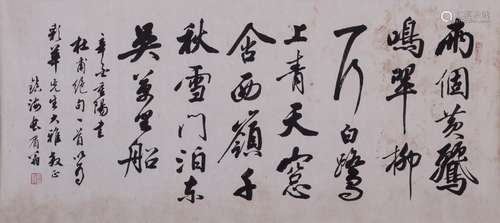 兩個黃鸝
鳴翠柳
一行白鷺
上青天窓
含西嶺千
秋雪門泊東
吳萬里船
辛酉重陽書
杜甫絕句一首
彩華先生大雅教正